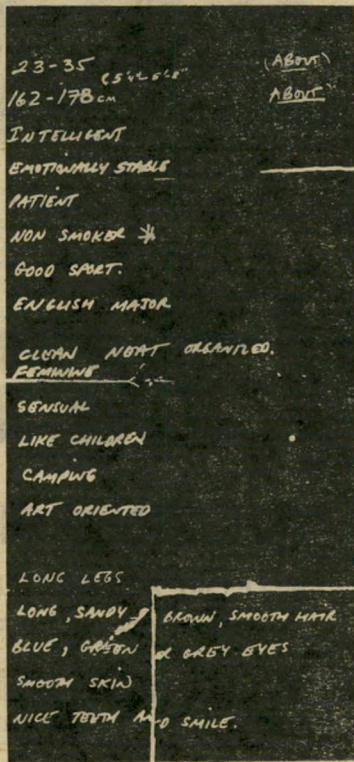 23-35 (ABOUT)
162-178 CM ABOUT
INTELLIGENT
EMOTIONALLY STABLE
PATIENT
NON SMOKER *
GOOD SPORT.
ENGLISH MAJOR
CLEAN NEAT ORGANIZED.
FEMININE
SENSUAL
LIKE CHILDREN
CAMPING
ART ORIENTED
LONG LEGS
LONG, SANDY, BROWN, SMOOTH HAIR
BLUE, GREEN OR GREY EYES
SMOOTH SKIN
NICE TEETH AND SMILE.